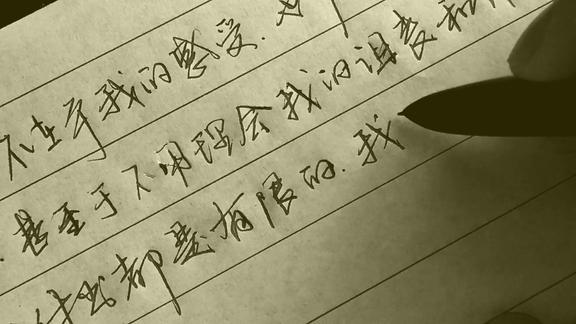 不在乎我的感受.
甚至于不用理会我的诅
什么都是有限的.我